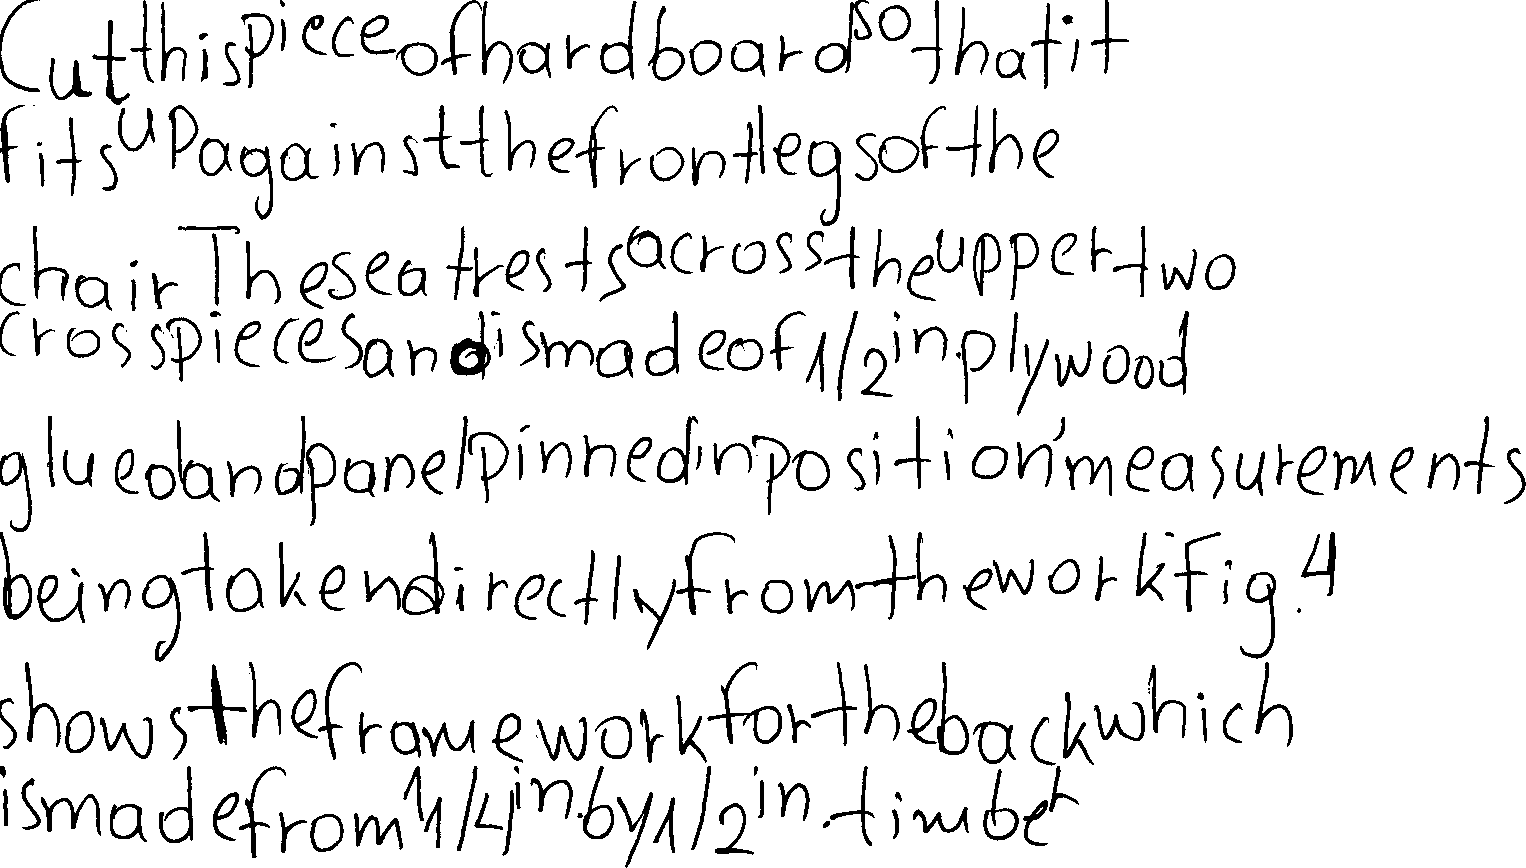 Cut this piece of hardboard so that it
fits up against the front legs of the
chair The seat rests across the upper two
crosspieces and is made of 1/2 in. plywood
glued and panel pinned in position' measurements
being taken directly from the work Fig. 4
shows the framework for the back which
is made from 1 1/4 in. by 1/2 in. timber